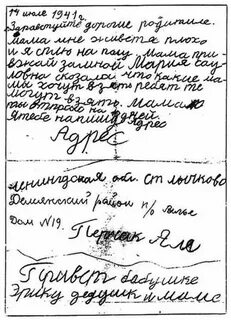 14 июле 1941г.
Здраствуйте дорогие родители.
Мама мне живется плохо
и я сплю на полу. Мама при-
езжай замной Мария Сау-
ловна сказала что какие ма-
мы хочут взять ребят те
могут взять. Мама
второго на
я тебе напишу адрес
Адрес
ленингдская обл. ст лычково
Демянский район п/о
Дом N19.
Перчак Аля
Привет бабушке
Эрику дедушк и маме